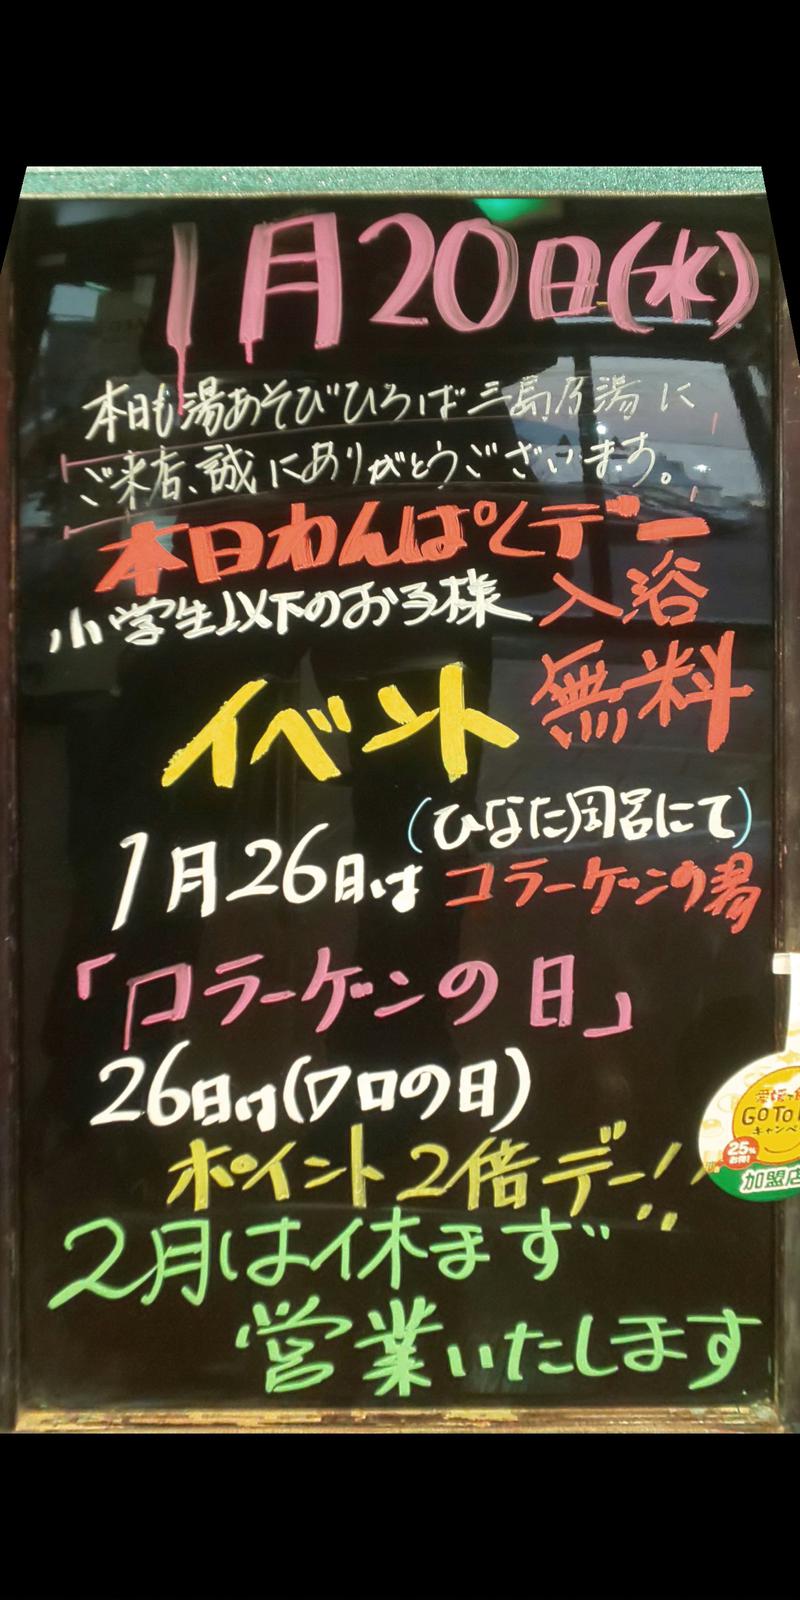 1月20日(水)
本日も湯あそびひろば三島乃湯に
ご来店、誠にありがとうございます。
本日わんぱくデー
小学生以下のお子様入浴
無料
イベント
(ひなた風呂にて)
1月26日は コラーゲンの湯
「コラーゲンの日」
26日は(フロの日)
ポイント2倍デー!!
2月は休まず
営業いたします
GO TO
キャンペ
25%
お得!
加盟店